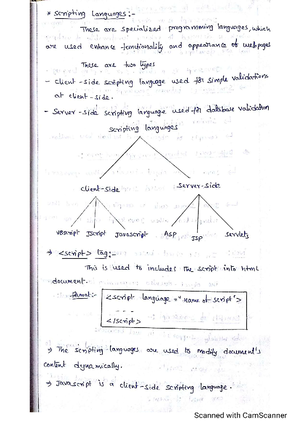 * Scripting Languages:-
These are specialized programming languages, which
are used enhance functionality and appearance of webpages
These are two types
- client-side scripting language used for simple validations
at client-side.
- Server-side scripting language used for database validation
Scripting languages
client-side
Server-side
VBScript
Jscript
Javascript
ASP
JSP
Servlets
→ <script> tag:-
This is used to includes the script into html
document.
<script language = "name of script">
- - -
</script>
→ The scripting languages are used to modify document's
content dynamically.
→ Javascript is a client-side scripting language.
Scanned with CamScanner